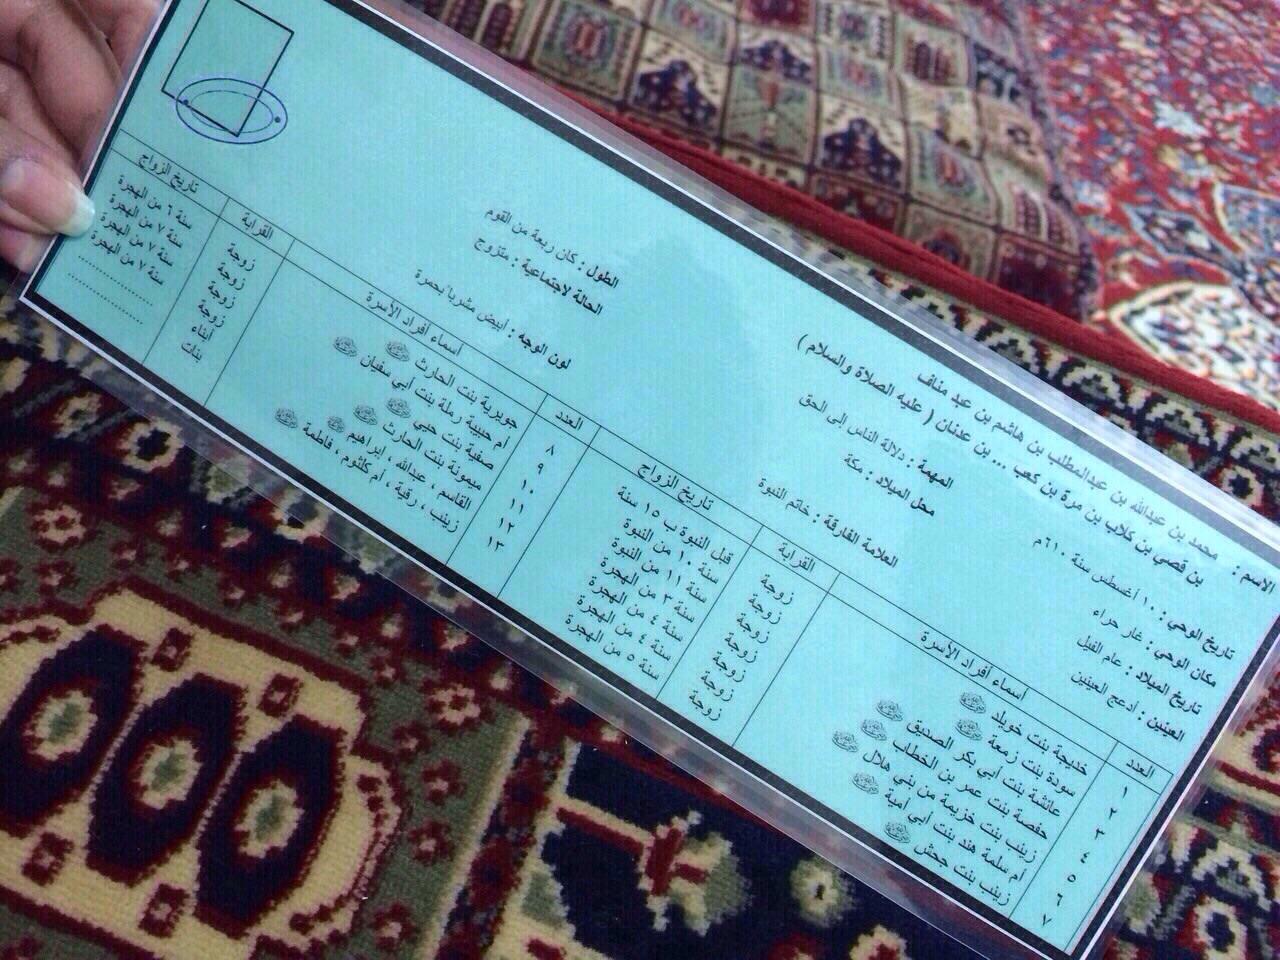 الاسم : محمد بن عبدالله بن عبدالمطلب بن هاشم بن عبد مناف
بن قصي بن كلاب بن مرة بن كعب ... بن عدنان ( عليه الصلاة والسلام )
تاريخ الوحي : ١٠ أغسطس سنة ٦١٠م
المهمة : دلالة الناس الى الحق
الطول : كان ربعة من القوم
مكان الوحي : غار حراء
محل الميلاد : مكة
الحالة لاجتماعية : متزوج
تاريخ الميلاد : عام الفيل
العينين : أدعج العينين
العلامة الفارقة : خاتم النبوة
لون الوجه : أبيض مشرباً بحمرة
العدد أسماء أفراد الأسرة القرابة تاريخ الزواج
١ خديجة بنت خويلد زوجة قبل النبوة ب ١٥ سنة
٢ سودة بنت زمعة زوجة سنة ١٠ من النبوة
٣ عائشة بنت أبي بكر الصديق زوجة سنة ١١ من النبوة
٤ حفصة بنت عمر بن الخطاب زوجة سنة ٣ من الهجرة
٥ زينب بنت خزيمة من بني هلال زوجة سنة ٤ من الهجرة
٦ أم سلمة هند بنت أبي أمية زوجة سنة ٤ من الهجرة
٧ زينب بنت جحش زوجة سنة ٥ من الهجرة
العدد أسماء أفراد الأسرة القرابة تاريخ الزواج
٨ جويرية بنت الحارث زوجة سنة ٦ من الهجرة
٩ أم حبيبة رملة بنت أبي سفيان زوجة سنة ٧ من الهجرة
١٠ صفية بنت حيي زوجة سنة ٧ من الهجرة
١١ ميمونة بنت الحارث زوجة سنة ٧ من الهجرة
١٢ القاسم ، عبدالله ، ابراهيم أبناء ................
١٣ زينب ، رقية ، أم كلثوم ، فاطمة بنات ................